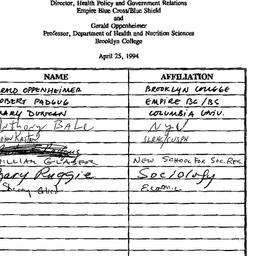 Director, Health Policy and Government Relations
Empire Blue Cross/Blue Shield
and
Gerald Oppenheimer
Professor, Department of Health and Nutrition Sciences
Brooklyn College
April 25, 1994
NAME AFFILIATION
RALD OPPENHEIMER BROOKLYN COLLEGE
OBERT PADGUG EMPIRE BC/BS
DUNCAN COLUMBIA UNIV.
nthony BALL NYU
SLRHC/CUSPH
ILLIAM GLASER NEW SCHOOL FOR SOC. RES.
ary Ruggie Sociology